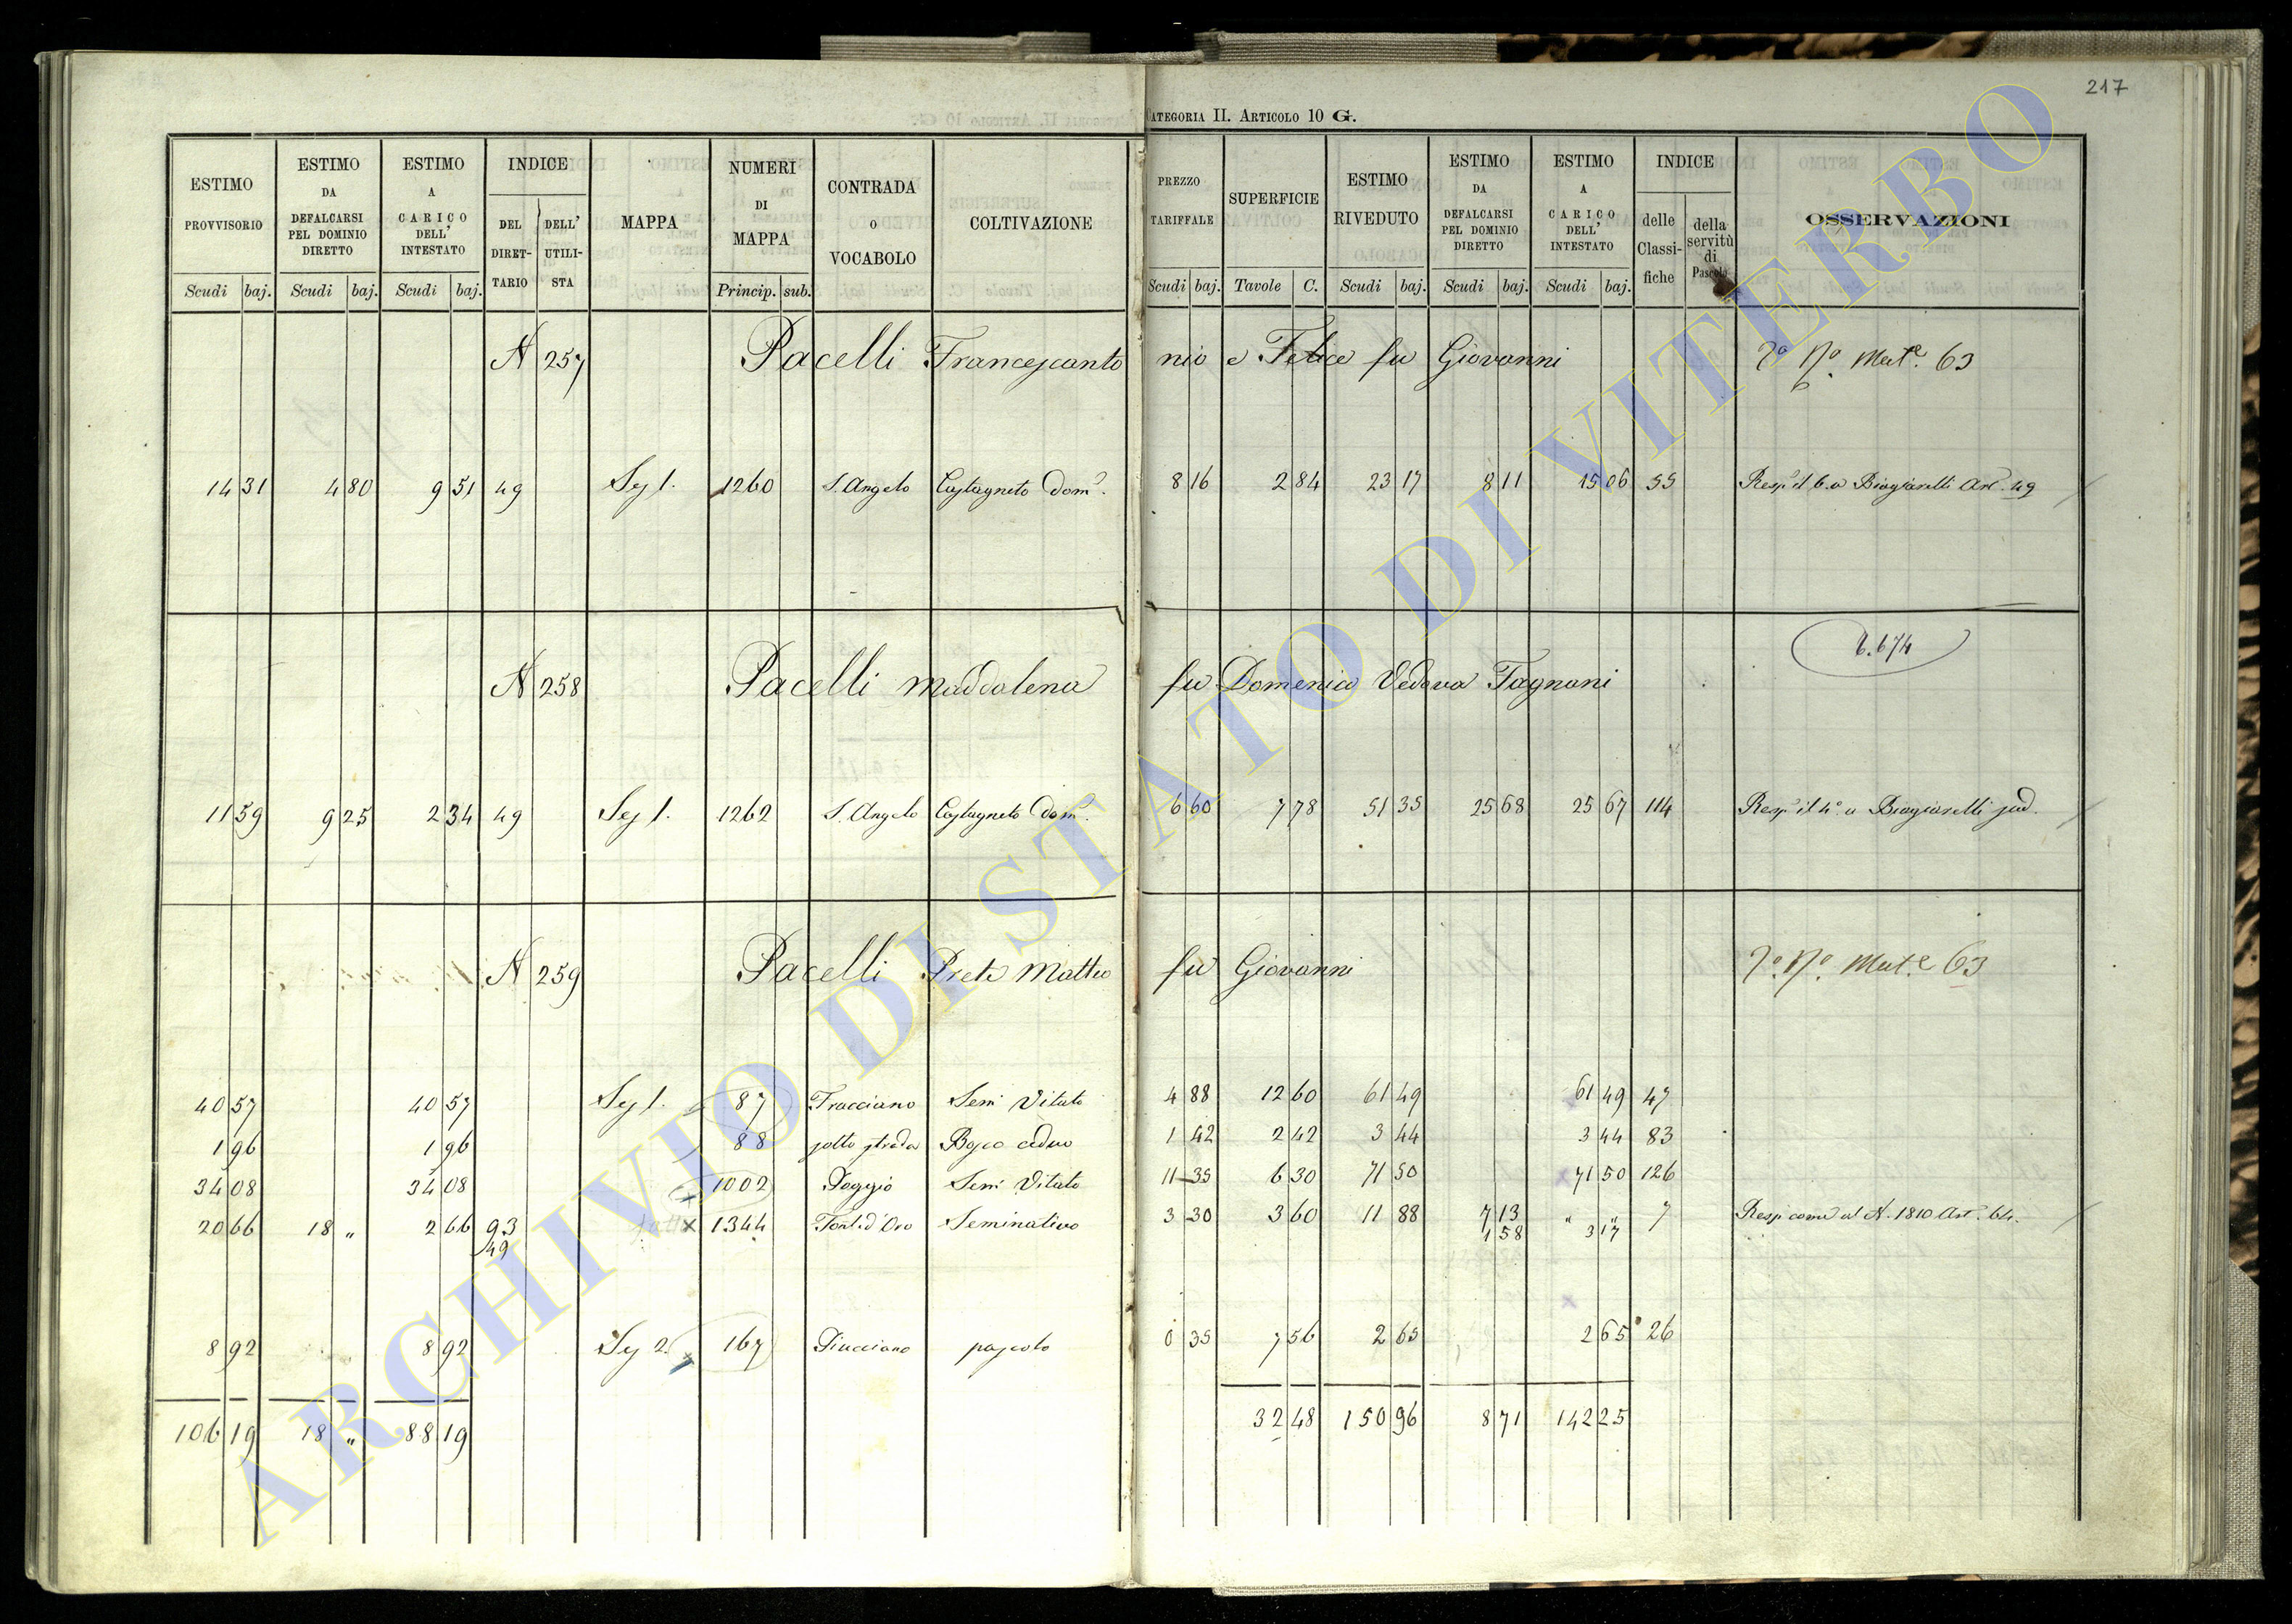 217
CATEGORIA II. ARTICOLO 10 G.
ESTIMO PROVVISORIO Scudi baj.
ESTIMO DA DEFALCARSI PEL DOMINIO DIRETTO Scudi baj.
ESTIMO A CARICO DELL' INTESTATO Scudi baj.
INDICE DEL DIRET-TARIO DELL' UTILI-STA
MAPPA
NUMERI DI MAPPA Princip. sub.
CONTRADA o VOCABOLO
COLTIVAZIONE
PREZZO TARIFFALE Scudi baj.
SUPERFICIE Tavole C.
ESTIMO RIVEDUTO Scudi baj.
ESTIMO DA DEFALCARSI PEL DOMINIO DIRETTO Scudi baj.
ESTIMO A CARICO DELL' INTESTATO Scudi baj.
INDICE delle Classi-fiche della servitù di Pascolo
OSSERVAZIONI
N 257 Pacelli Francescanto nio e Felice fu Giovanni Mut.e 63
14 31 4 80 9 51 49 Sez 1. 1260 S. Angelo Castagneto Dom.o 8 16 2 84 23 17 8 11 15 06 55 Resp. il 6.o a Biagiarelli Art. 49
6.674
N 258 Pacelli Maddalena fu Domenico Vedova Tagnani
11 59 9 25 2 34 49 Sez 1. 1262 S. Angelo Castagneto Dom.o 6 60 7 78 51 35 25 68 25 67 114 Resp. il 4.o a Biagiarelli sud.
N 259 Pacelli Prete Matteo fu Giovanni Mut.e 63
40 57 40 57 Sez 1. 87 Tracciano Sem Vitato 4 88 12 60 61 49 61 49 47
1 96 1 96 88 sotto strada Bosco ceduo 1 42 2 42 3 44 3 44 83
34 08 34 08 1002 Poggio Sem Vitato 11 35 6 30 71 50 71 50 126
20 66 18 " 2 66 93 x 1344 Font.d'Oro Seminativo 3 30 3 60 11 88 7 13 " " 7 Resp come al N. 1810 Art. 64.
49 1 58 3 17
8 92 8 92 Sez 2. 167 Piucciano pascolo 0 35 7 56 2 65 2 65 26
106 19 18 " 88 19 32 48 150 96 8 71 142 25
ARCHIVIO DI STATO DI VITERBO